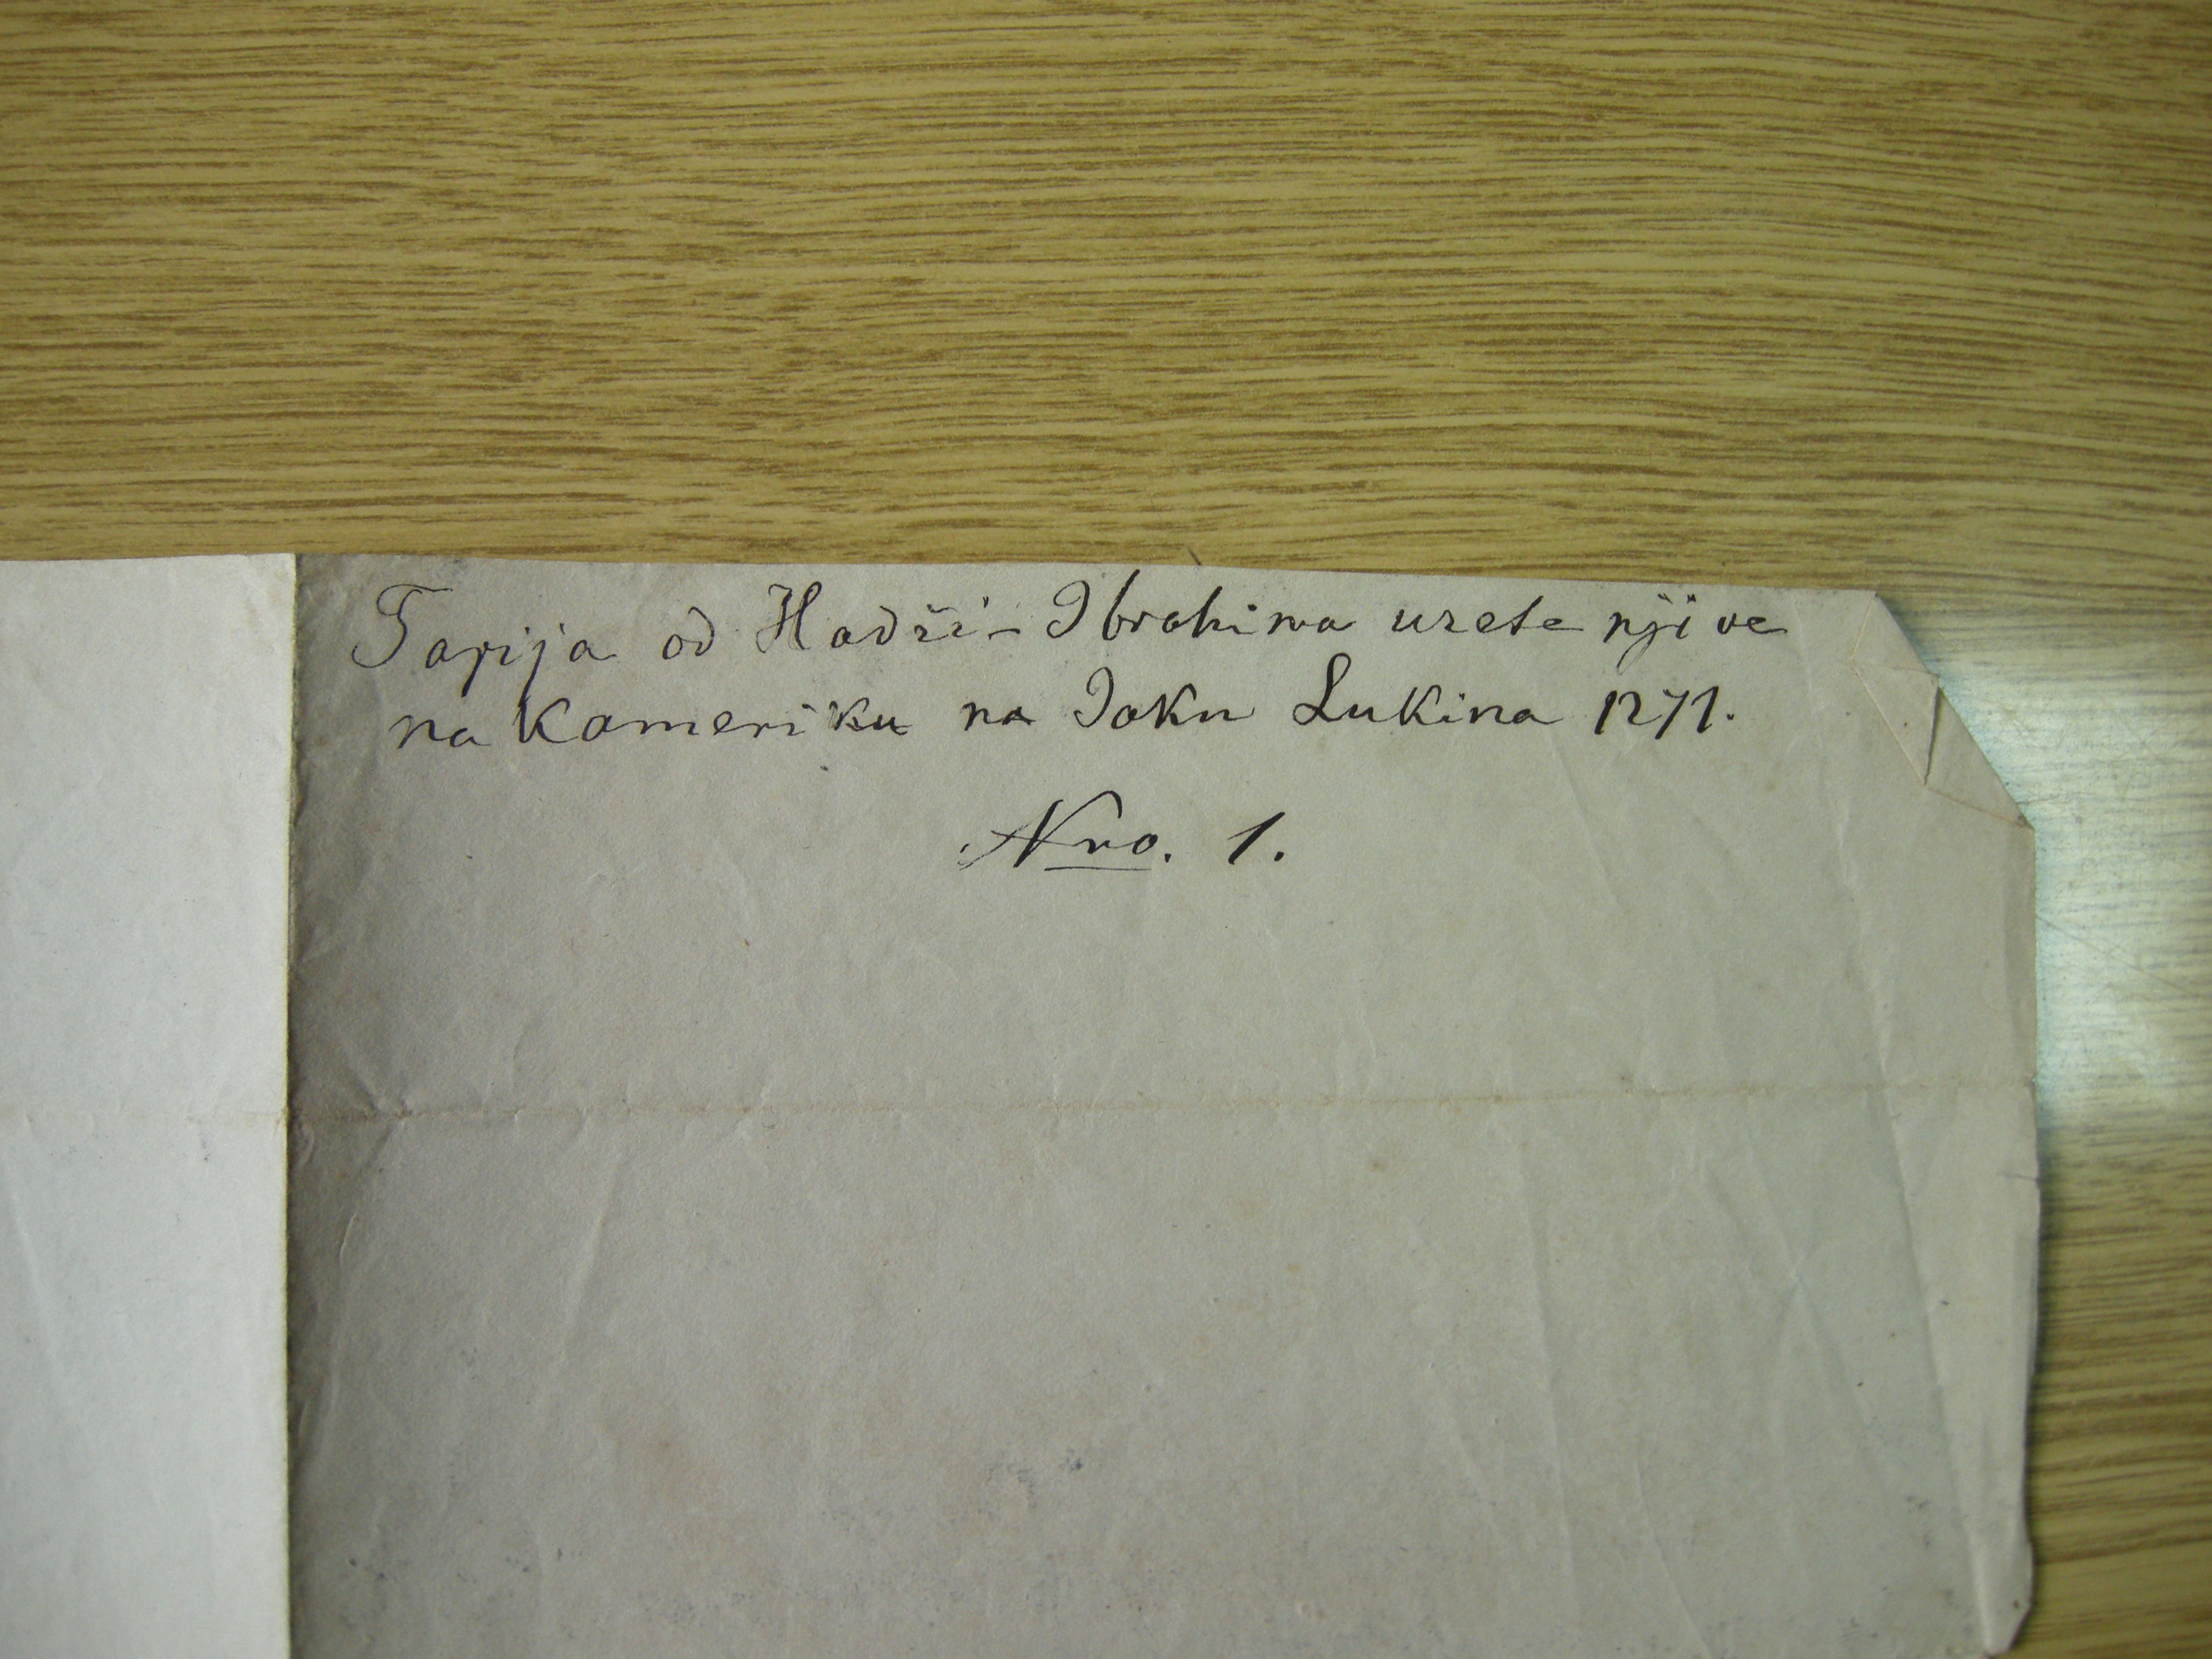 Tapija od Hadži-Ibrahima uzete njive
na Kameriku na Joku Lukina 1271.
Nro. 1.